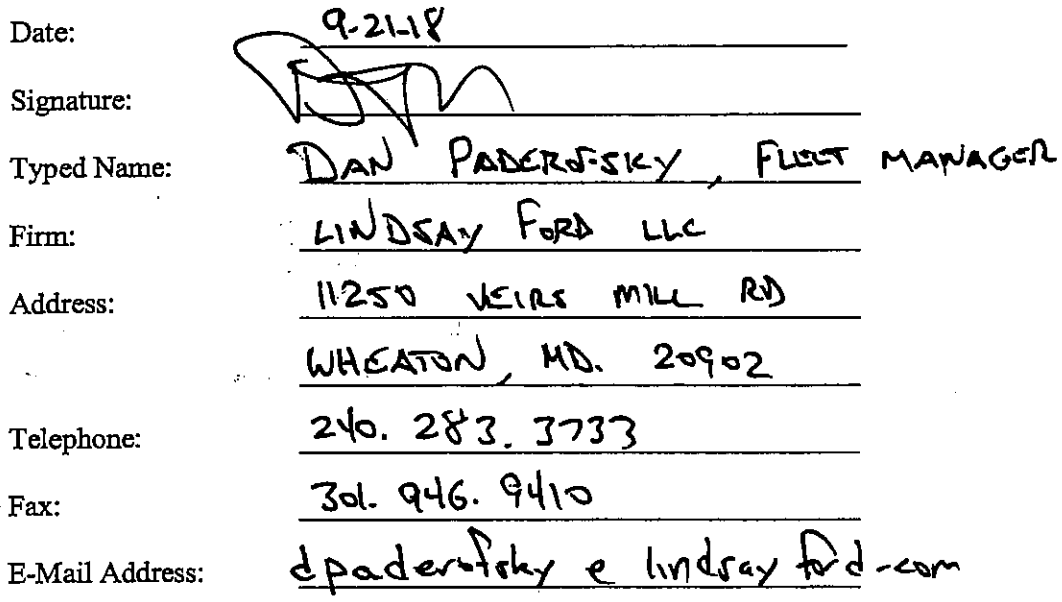 Date: 9-21-18
Signature:
Typed Name: DAN PADEROFSKY, FLEET MANAGER
Firm: LINDSAY FORD LLC
Address: 11250 VEIRS MILL RD
WHEATON, MD. 20902
Telephone: 240. 283. 3733
Fax: 301. 946. 9410
E-Mail Address: dpaderofsky @ lindsayford.com